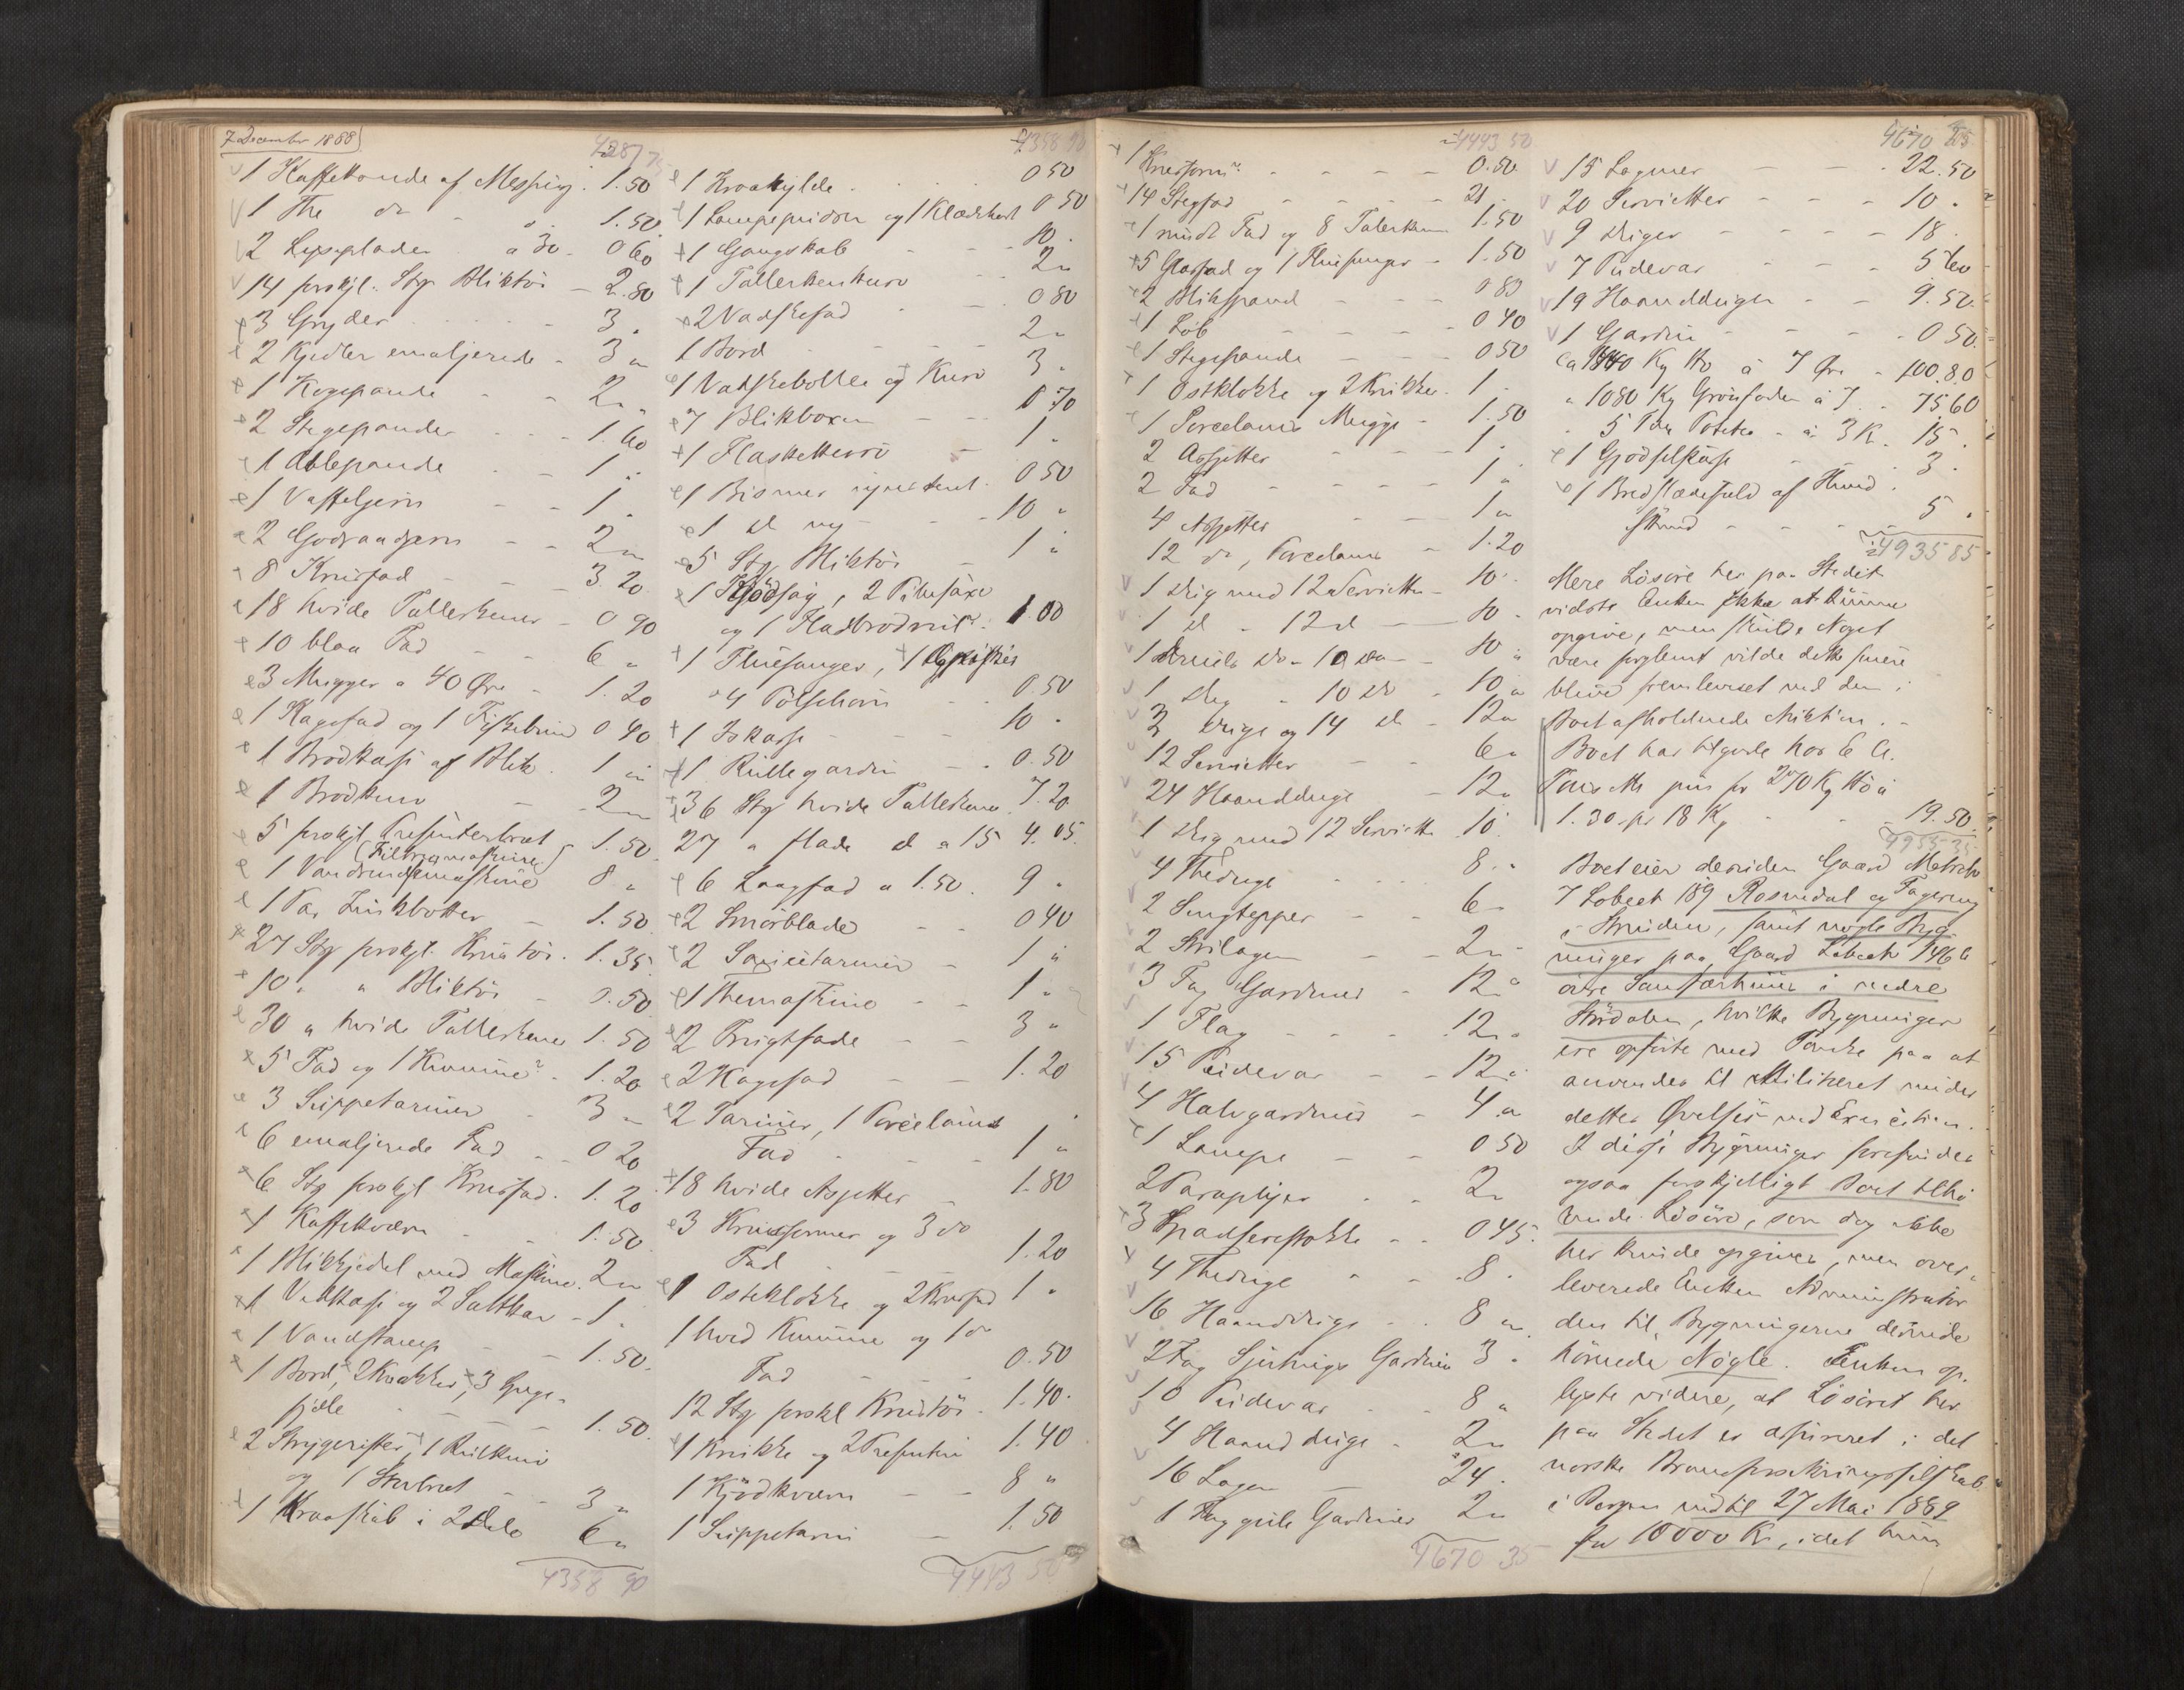 7 December 1888
4287 75
1 Kaffekande af Messing . 1.50
1 The do - 1.50
2 Lyseplader a 30 - 0 60
14 forskjl. Stg Bliktöi - 2.80
3 Gryder - 3 "
2 Kjedler emaljerede - 3 "
1 Kogepande - 2 "
2 Stegepander - 1.60
1 Æblepande - 1 "
1 Vaffeljern - 1 "
2 Godraadjern - 2 "
8 Krusfad - 3 20
18 hvide Tallerkener - 0 90
10 blaa Fad - 6 "
3 Mugger a 40 Øre - 1.20
1 Kagefad og 1 0 40
1 Brödkasse af Blik . 1 "
1 Brödkurv - 2 "
5 forskjl. 1.50
(Filtrermaskine)
1 8 "
1 Par 1.50
27 Stg forskjl. 1.35
10 " " Bliktöi - 0.50
30 " hvide Tallerkener 1.50
5 Fad og 1 Kumme - 1.20
3 Suppeterriner - 3 "
6 emaljerede Fad - 0 20
6 Stg forskjl Krusfad . 1.20
1 Kaffekværn - 1.50
1 Blikkjedel med Maskine . 2 "
1 og 2 Saltkar - 1 "
1 Vandstamp - 1.50
1 Bord, 2 Krakker, 3
fjele - 1.50
2 Strygerister, 1
og 1 - 3 "
1 Kraaskab i 2 Dele 6 "
4358 90
4358 90
1 Kraahylde . 0 50
1 og 1 0 50
1 Gangskab 10 "
1 Tallerkenkurv 2 "
2 Vadskefad - 0 80
1 Bord - 2 "
1 Vadskebolle og Kurv 3 "
7 Blikboxer - 0 70
1 Flaskekurv - 1 "
1 Bismer 0 50
1 do ny - 10 "
5 Stg Bliktöi - 1 "
1 Kjödsag, 2
og 1 1.00
1 Fluefanger, 1
4 Pölsehorn 0.50
1 Iskasse - 10 "
1 Rullegardin - 0.50
36 Stg hvide Tallerkener 7.20
27 " flade do a 15 4.05
6 Laagfad a 1.50 . 9 "
2 Smörblade - 0 40
2 - 1 "
1 Themaskine - 1 "
2 Frugtfade - 3 "
2 Kagefad - 1.20
2 Tariner, 1 Porcelains
Fad - 1 "
18 hvide Asjetter - 1.80
3 og 3 do
Fad - 1.20
1 Osteklokke og 2 Krusfad 1 "
1 hvid Kumme og 1 do
Fad - 0.50
12 Stg forskl 1.40
1 Krukke og 2 1.40
1 Kjödkværn - 8 "
1 Suppetarin - 1.50
4443 50
4443 50
1 0.50
14 Stegfad - 21
1 rundt Fad og 8 Talerkener 1.50
5 Glasfad og 1 Fluefanger - 1.50
2 Blikspand - 0 80
1 - 0 40
1 Stegepande - 0 50
1 Ostklokke og 2 Krukker . 1 "
1 Porcelains Mugge - 1.50
2 Asjetter - 1 "
2 Fad - 1 "
4 Asjetter - 1 "
12 do, Porcelains - 1.20
1 Dug med 12 Servietter - 10 "
1 do - 12 do - 10 "
1 do - 10 do - 10 "
1 Dug - 10 do - 10 "
2 Duge og 14 do - 12 "
12 Servietter - 6 "
24 Haandduge - 12 "
1 Dug med 12 Servietter 10 "
4 Theduge - 8 "
2 Sengtepper - 6 "
2 Strilagen - 2 "
3 Fag Gardiner - 12 "
1 Flag - 12 "
15 Pudevar - 12 "
4 Halvgardiner - 4 "
1 Lampe - 0 50
2 Paraplyer - 2 "
3 Spadserestokke - 0 45
4 Theduge - 8 "
16 Haandduge - 8 "
2 Fag Gardiner 3 "
10 Pudevar - 8 "
4 Haandduge - 2 "
16 Lagen - 24 "
1 Fag gule Gardiner 2 "
4670 35
4670 35
15 Lagner - 22.50
20 Servietter - 10 "
9 Duger - 18 "
7 Pudevar - 5 60
19 Haandduger - 9.50
1 Gardin - 0 50
Ca 1440 Kg Hö à 7 Øre - 100.80
" 1080 Kg Grönfoder à 7 - 75.60
" 5 Tdr Poteter - à 3 K. 15 "
1 Gjödselkasse - 3 "
1 af
- 5 "
4935 85
Mere Lösöre her paa Stedet
vidste Enken ikke at kunne
opgive, men skulde Noget
være forglemt vilde dette senere
blive fremleveret ved den i
Boet afholdende Auktion. -
Boet har tilgode hos E A.
for 270 Kg Hö à
1.30 pr 18 Kg - 19.50
4955 35
Boet eier desuden Gaard Matrik
7 Löbenr 189 Rosendal og
i , samt nogle Byg-
ninger paa Gaard Löbenr 146 b
övre i nedre
Stördalen, hvilke Bygninger
ere opförte med Tanke paa at
anvendes til Militæret under
dettes Øvelser ved Exercitien.
I disse Bygninger forefindes
ogsaa forskjelligt Boet tilhö-
rende Lösöre, som dog ikke
her kunde opgives, men over-
leverede Enken Administrator
den til Bygningerne derinde
hörende Nögle. Enken op-
lyste videre, at Lösöret her
paa Stedet er assureret i det
norske Brandforsikringsselskab
i Bergen indtil 27 Mai 1889
for 10000 Kr, idet hun